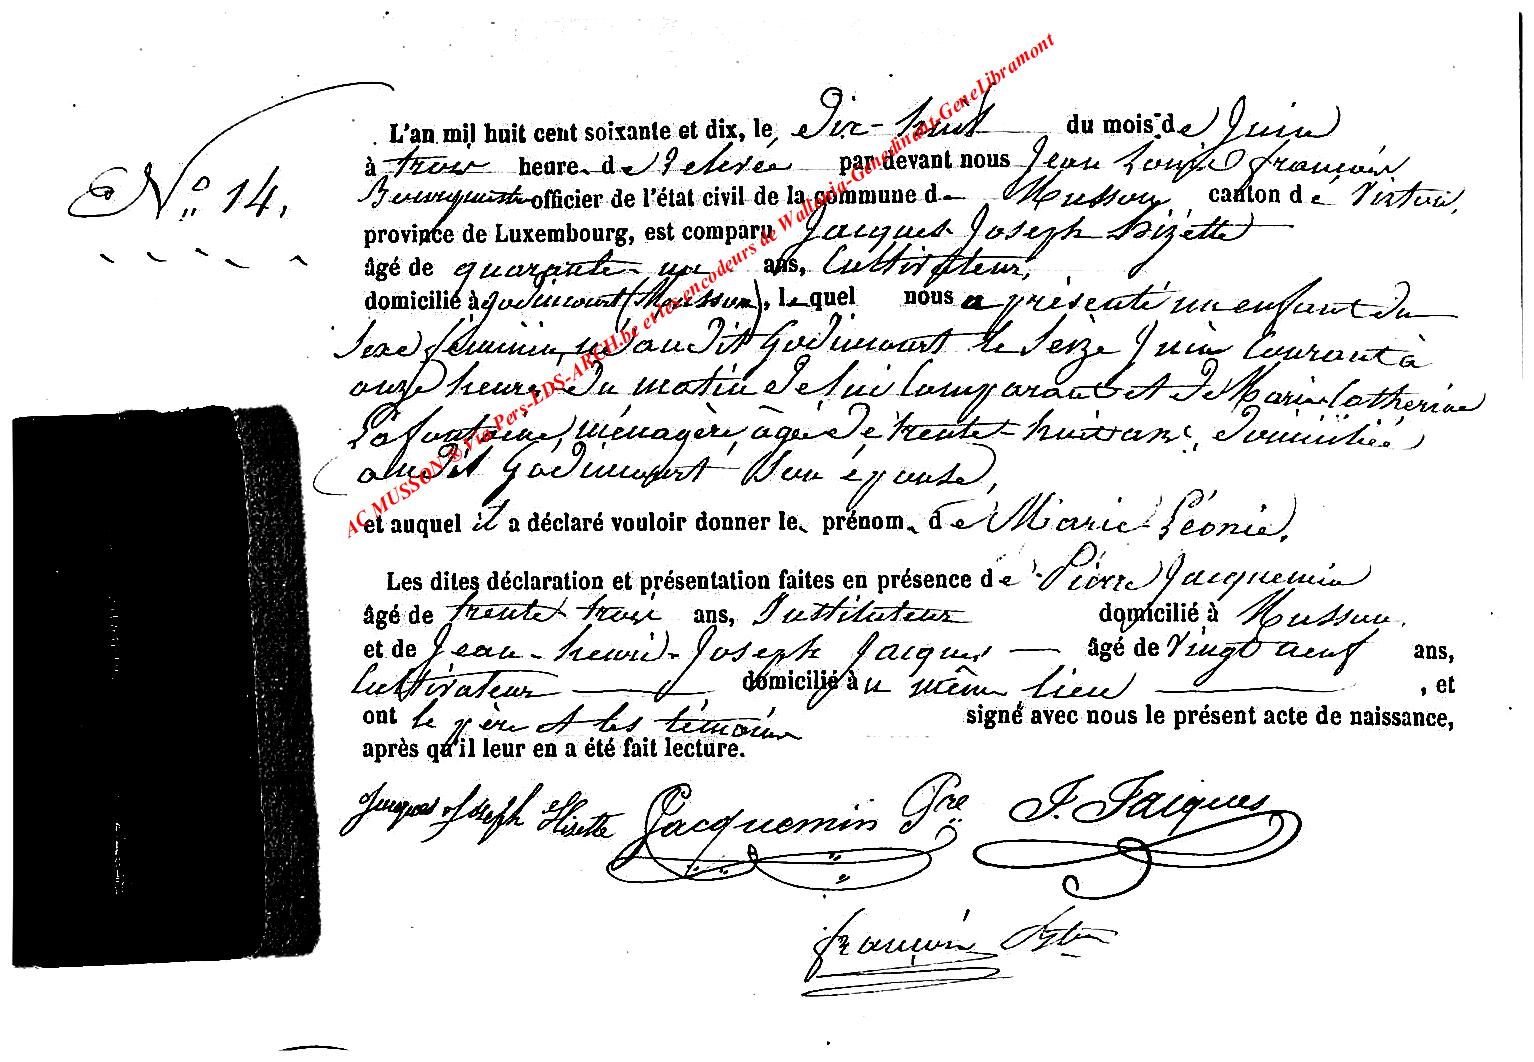 L'an mil huit cent soixante et dix, le Dix-huit du mois de Juin
N° 14.
à trois heure de relevée par devant nous Jean Louis François
Bourgmestre officier de l'état civil de la commune de Musson canton dé Virton,
province de Luxembourg, est comparu Jacques Joseph Hizette
âgé de quarante-un ans, Cultivateur,
domicilié à Godincourt (Musson), lequel nous a présenté un enfant du
sexe féminin, né audit Godincourt le seize Juin courant à
onze heures du matin de lui comparant et de Marie Catherine
Lafontaine, ménagère, âgée de trente-huit ans, domiciliée
audit Godincourt son épouse,
et auquel il a déclaré vouloir donner le prénom de Marie-Léonie.
Les dites déclaration et présentation faites en présence de Pierre Jacquemin
âgé de trente trois ans, Instituteur domicilié à Musson.
et de Jean-henri-Joseph Jacques âgé de Vingt neuf ans,
Cultivateur domicilié au même lieu, et
ont le père et les témoins signé avec nous le présent acte de naissance,
après qu'il leur en a été fait lecture.
Jacques Joseph Hizette Jacquemin Pre J. Jacques
françois
AC MUSSON ® Via Pers-EDS-ARCH.be et les encodeurs de Wallonia-Genedinant-GeneLibramont